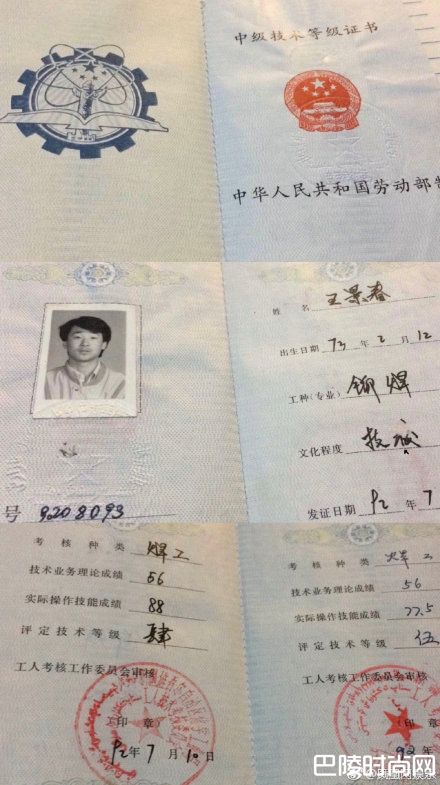 中级技术等级证书
中华人民共和国劳动部制
姓名 王景春
出生日期 73 年 2 月 12
工种(专业) 铆焊
文化程度 技校
发证日期 92 年 7
号 9208093
考核种类 焊工
技术业务理论成绩 56
实际操作技能成绩 88
评定技术等级 肆
工人考核工作委员会审核
(印 章)
92 年 7 月 10 日
考核种类 焊工
技术业务理论成绩 56
实际操作技能成绩 77.5
评定技术等级 伍
工人考核工作委员会审核
(印 章)
92 年
巴陵时尚网